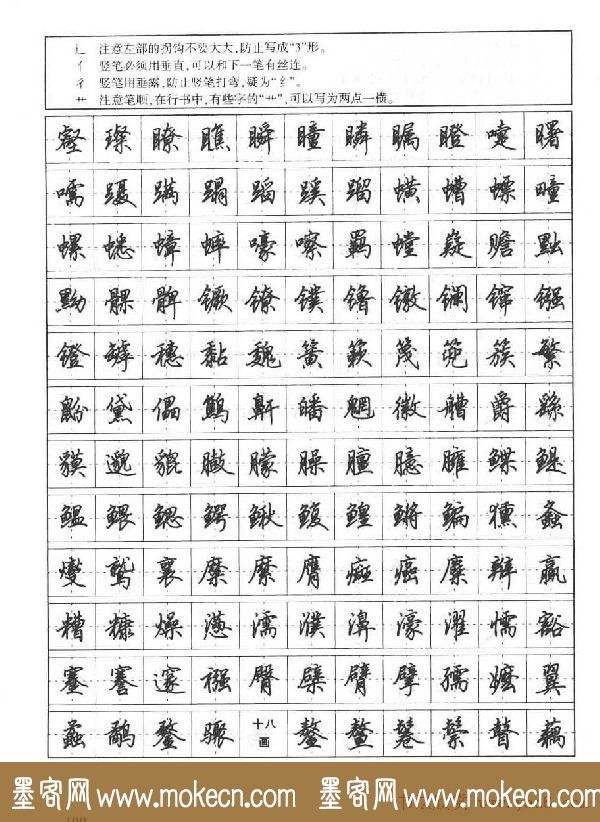 辶 注意左部的拐钩不要大大,防止写成“3”形。
亻 竖笔必须用垂直,可以和下一笔有丝连。
彳 竖笔用垂露,防止竖笔打弯,疑为“纟”。
艹 注意笔顺,在行书中,有些字的“艹”,可以写为两点一横。
壑 璨 瞭 瞧 瞬 瞳 瞵 瞩 瞪 嚏 曙
嚅 蹑 蹒 蹋 蹈 蹊 蹓 蟥 螬 螵 疃
螺 蟋 蟑 蟀 嚎 嚓 羁 螳 嶷 赡 黜
黝 髁 髀 镢 镣 镤 镥 镦 镧 镩 镪
镫 罅 穗 黏 魏 簧 簌 篾 篼 簇 繁
黛 儡 鹪 鼾 皤 魍 徽 艚 爵 繇
貘 邈 貔 臌 朦 臊 膻 臆 臃 鲽 鳀
鳁 鳂 鳃 鳄 鳅 鳆 鳇 鳉 鳊 獯 螽
燮 鹫 襄 糜 縻 膺 癍 麋 辫 赢
糟 糠 燥 懑 濡 濮 濞 濠 濯 懦 豁
蹇 謇 邃 襁 臀 檗 臂 擘 孺 嬷 翼
蟊 鹬 鍪 骤 十八画 鳌 鬈 鬃 瞽 藕
墨客网 www.mokecn.com 墨客网 www.mokecn.com